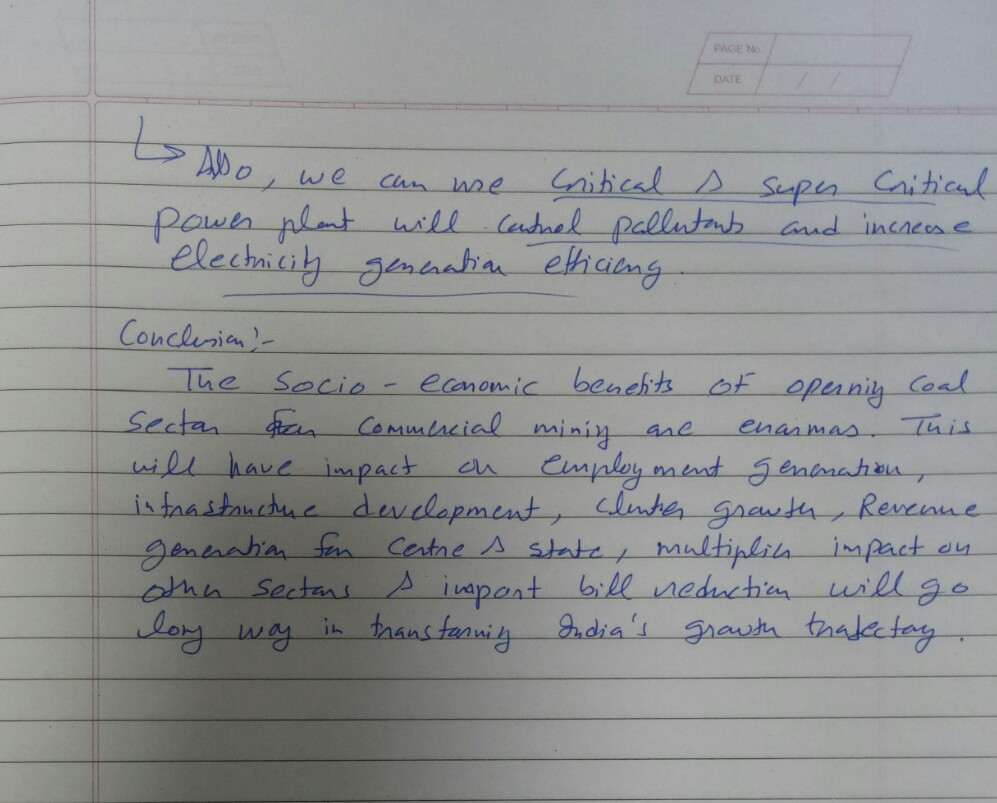 PAGE No.
DATE / /
↳ Also, we can use Critical & super Critical
power plant will control pollutants and increase
electricity generation efficieng.
Conclusion:-
The Socio - economic benefits of openniy Coal
Sector for Commercial miniy are enormas. This
will have impact on employment generation,
infrastructure development, cluster growth, Revenue
generation for Centre & state, multiplier impact on
other sectors & import bill reduction will go
long way in transformiy India's growth trajectory.